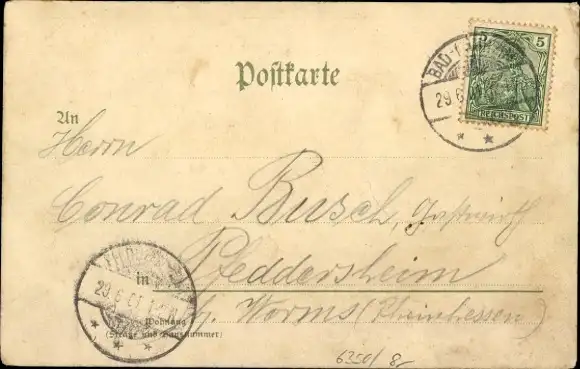 Postkarte
5
REICHSPOST
BAD-
29.6.
An
Herrn
Conrad Busch, Gastwirth
Pfeddersheim
in
29.6.01
b. Worms (Rheinhessen)
Wohnung
(Straße und Hausnummer)
6350/8